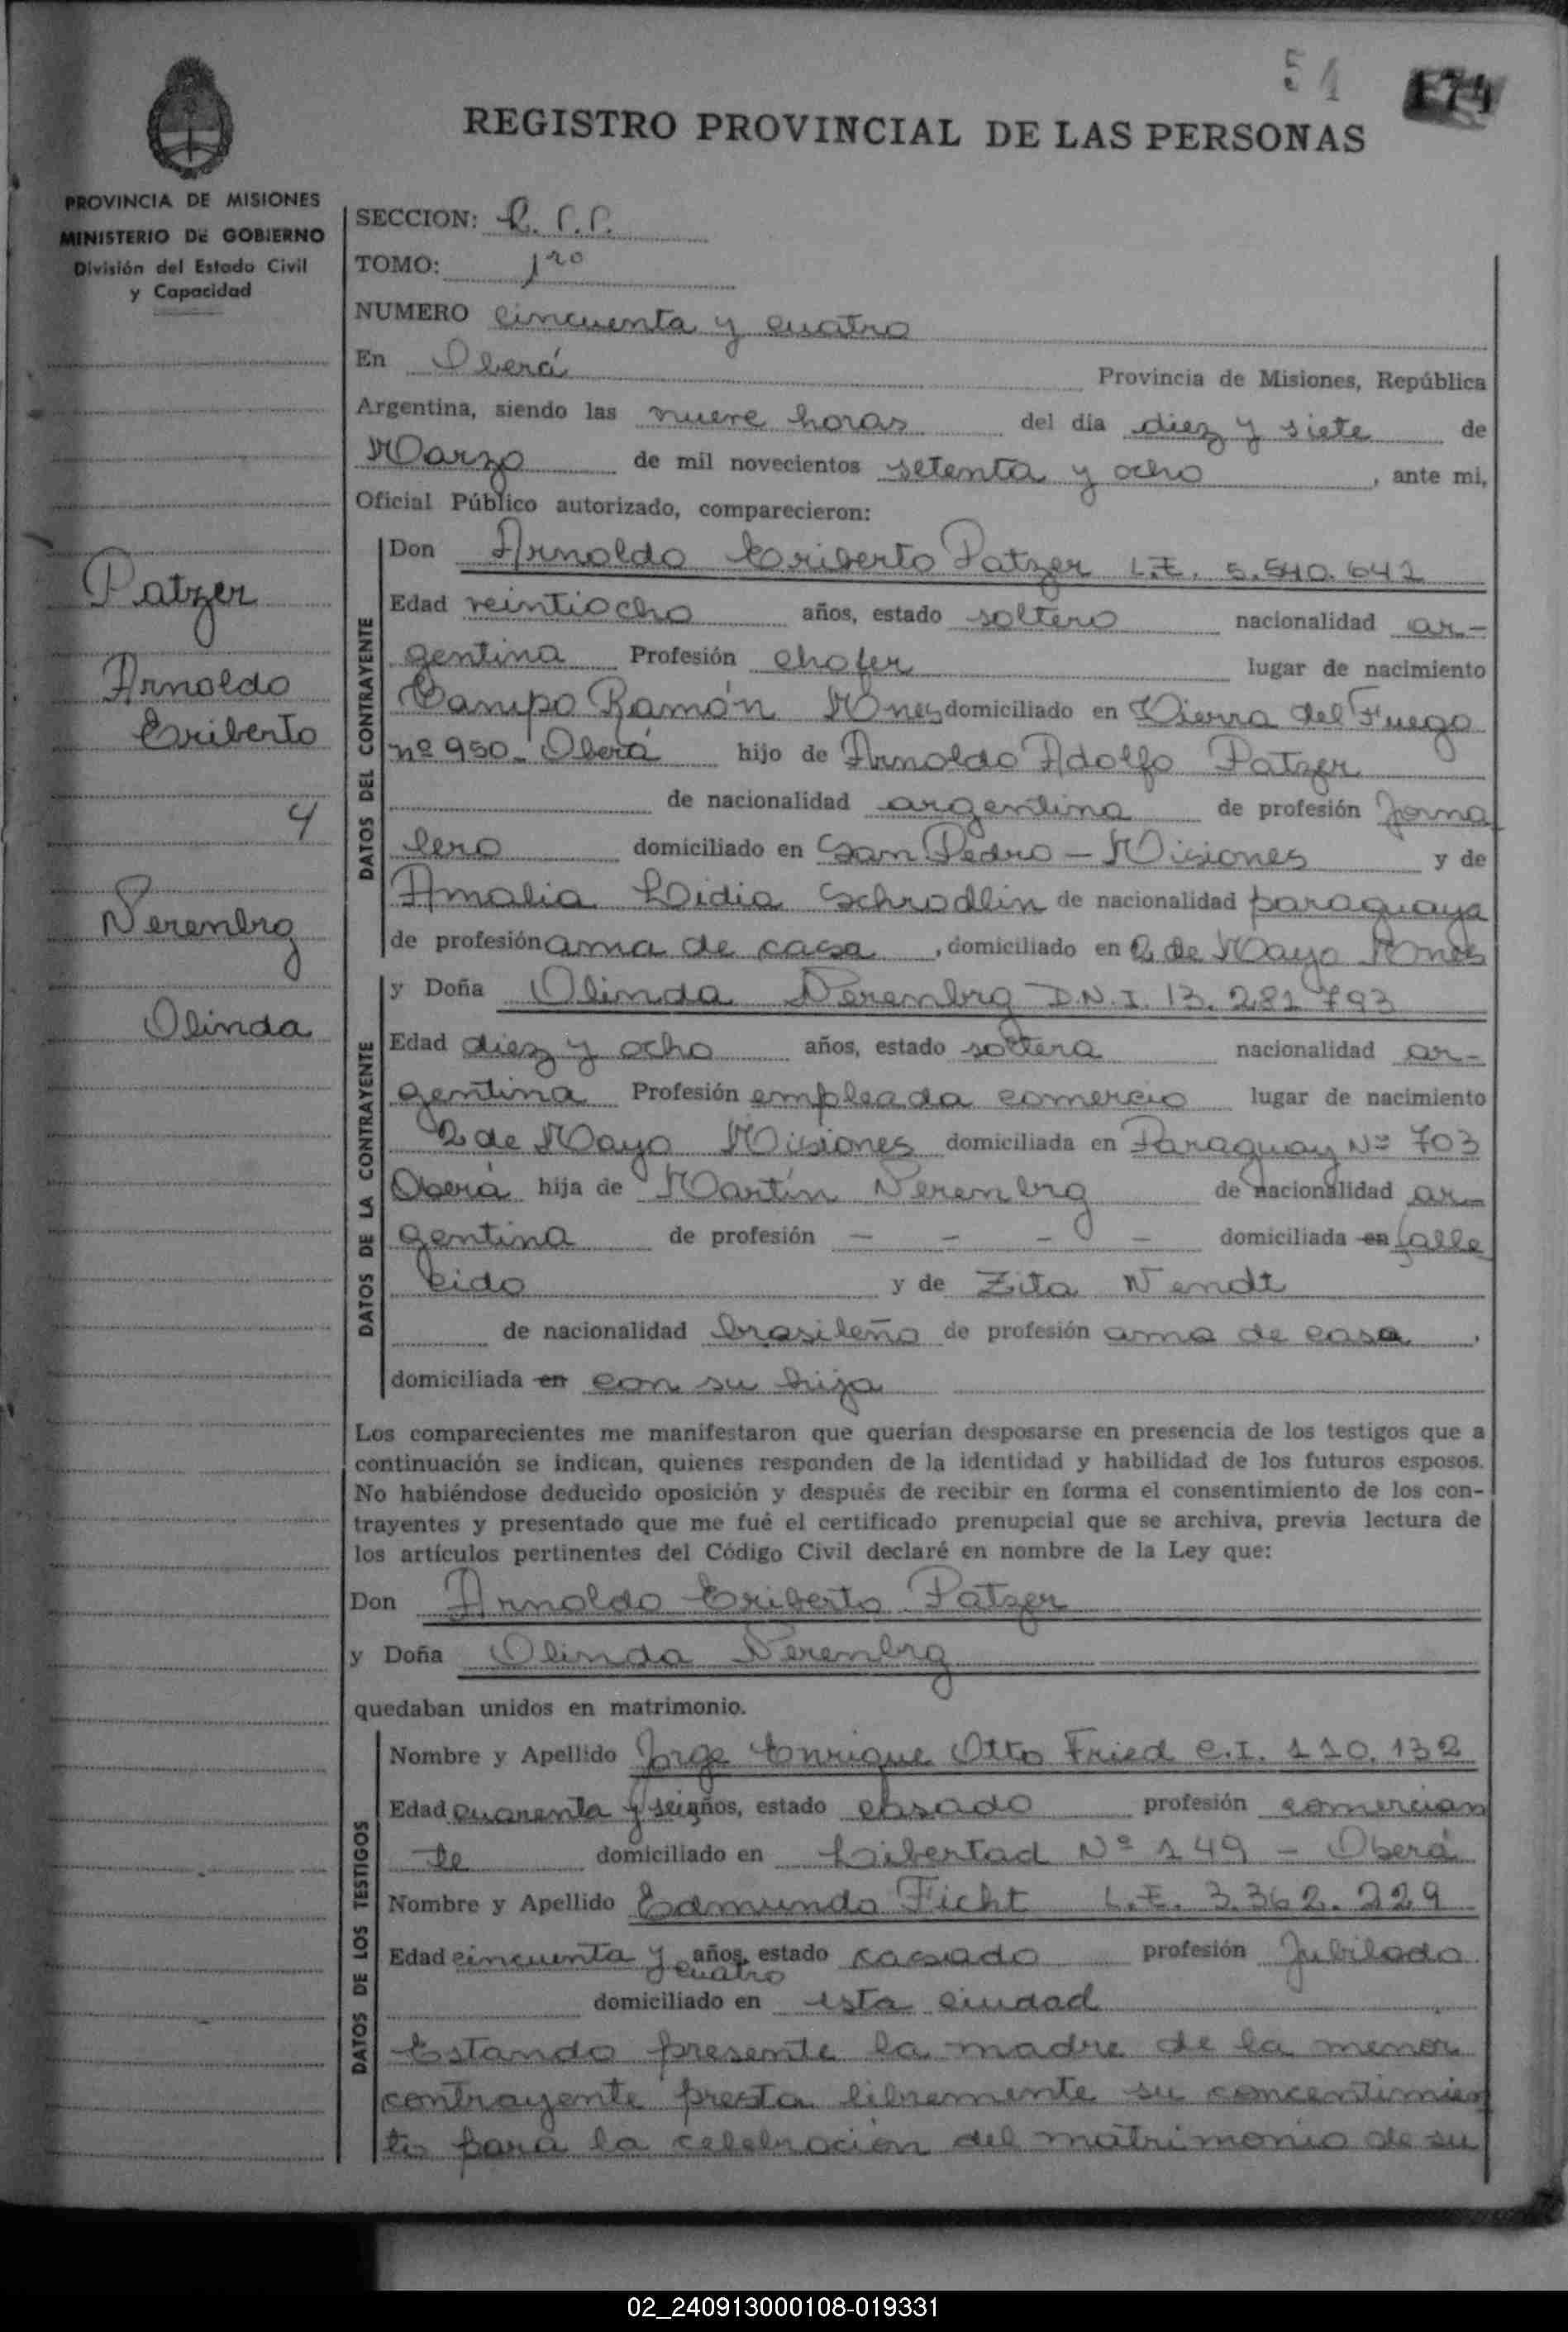 54 174
REGISTRO PROVINCIAL DE LAS PERSONAS
PROVINCIA DE MISIONES
MINISTERIO DE GOBIERNO
División del Estado Civil
y Capacidad
Patzer
Arnoldo
Eriberto
y
Nerenbrg
Olinda
SECCION:
TOMO: 1ro
NUMERO cincuenta y cuatro
En Oberá Provincia de Misiones, República
Argentina, siendo las nueve horas del día diez y siete de
Marzo de mil novecientos setenta y ocho, ante mi,
Oficial Público autorizado, comparecieron:
DATOS DEL CONTRAYENTE
Don Arnoldo Eriberto Patzer L.E. 5.540.642
Edad veintiocho años, estado soltero nacionalidad ar-
gentina Profesión chofer lugar de nacimiento
Campo Ramón Mnes domiciliado en Tierra del Fuego
nº 950- Oberá hijo de Arnoldo Adolfo Patzer
de nacionalidad argentina de profesión jorna
lero domiciliado en San Pedro - Misiones y de
Amalia Lidia Schrodlin de nacionalidad paraguaya
de profesión ama de casa, domiciliado en 2 de Mayo Mnes
DATOS DE LA CONTRAYENTE
y Doña Olinda Nerenbrg D.N.I. 13.281.793
Edad diez y ocho años, estado soltera nacionalidad ar-
gentina Profesión empleada comercio lugar de nacimiento
2 de Mayo Misiones domiciliada en Paraguay Nº 703
Oberá hija de Martín Nerenbrg de nacionalidad ar-
gentina de profesión - - - - domiciliada en falle
cido y de Zita Wendt
de nacionalidad brasileña de profesión ama de casa,
domiciliada en con su hija
Los comparecientes me manifestaron que querían desposarse en presencia de los testigos que a
continuación se indican, quienes responden de la identidad y habilidad de los futuros esposos.
No habiéndose deducido oposición y después de recibir en forma el consentimiento de los con-
trayentes y presentado que me fué el certificado prenupcial que se archiva, previa lectura de
los artículos pertinentes del Código Civil declaré en nombre de la Ley que:
Don Arnoldo Eriberto Patzer
y Doña Olinda Nerenbrg
quedaban unidos en matrimonio.
DATOS DE LOS TESTIGOS
Nombre y Apellido Jorge Enrique Otto Fried C.I. 110.132
Edad cuarenta y seis años, estado casado profesión comercian
te domiciliado en Libertad Nº 149 - Oberá
Nombre y Apellido Edmundo Ficht L.E. 3.362.229
Edad cincuenta y cuatro años, estado casado profesión Jubilado
domiciliado en esta ciudad
Estando presente la madre de la menor
contrayente presta libremente su concentimien
to para la celebración del matrimonio de su
02_240913000108-019331